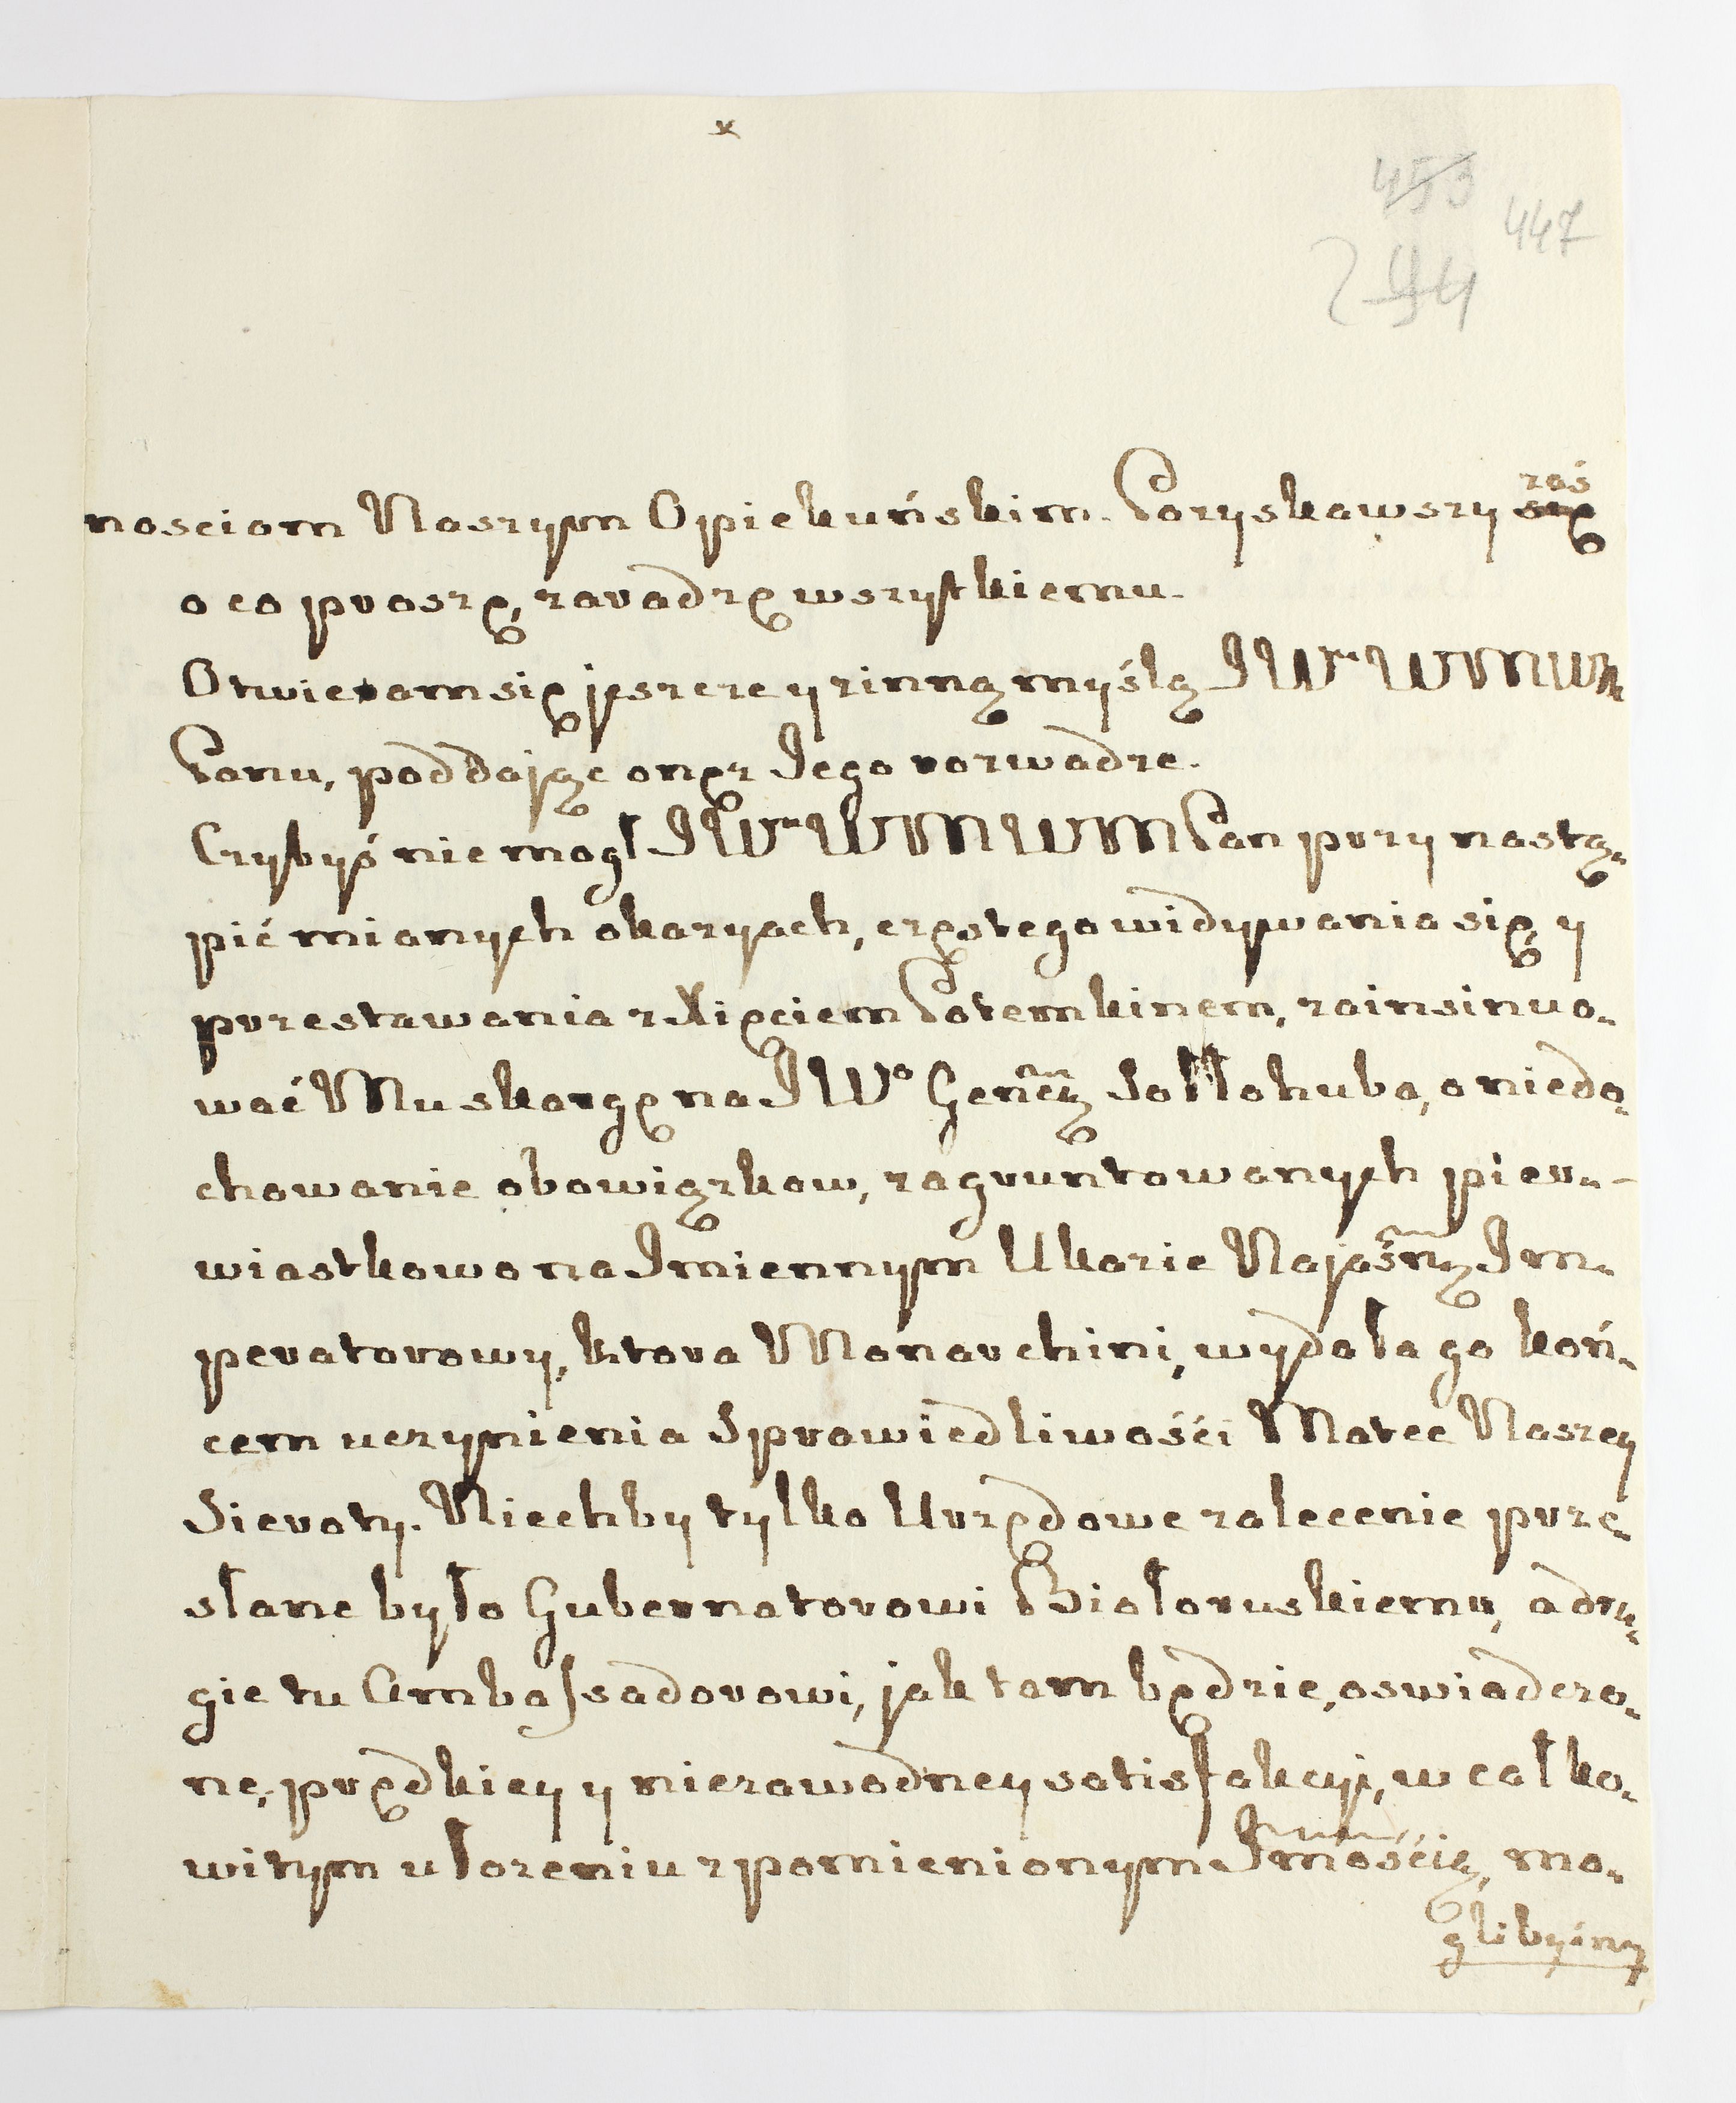 x
453
447
244
nosciom Naszym Opiekuńskim. Pozyskawszy zaś się
o co proszę, zaradzę wszystkiemu.
Otwieram się jeszcze y z inną myślą JW WMW
Panu, poddając onęż Jego rozwadze.
Czybyś nie mogł JW WM WM Pan przy nastą-
pić mianych okazyach, częstego widywania się, y
przestawania z Xięciem Potemkinem, zainsinuo-
wać Mu skargę na JWo Genłą Sołłohuba, o niedo-
chowanie obowiązkow, zagruntowanych pier-
wiastkowo na Jmiennym Ukazie Najaśnź Jm-
peratorowy, ktora Monarchini, wydała go koń-
cem uczynienia Sprawiedliwości Matce Naszey
Sieroty. Niechby tylko Urzędowe zalecenie prze-
słane było Gubernatorowi Białoruskiemu, a dru-
gie tu Ambassadorowi, jak tam będzie, oswiadczo-
ne, prędkiey y niezawodney satisfakcyi, w całko-
witym ułożeniu z pomienionym Jmością, mo-
glibyśmy